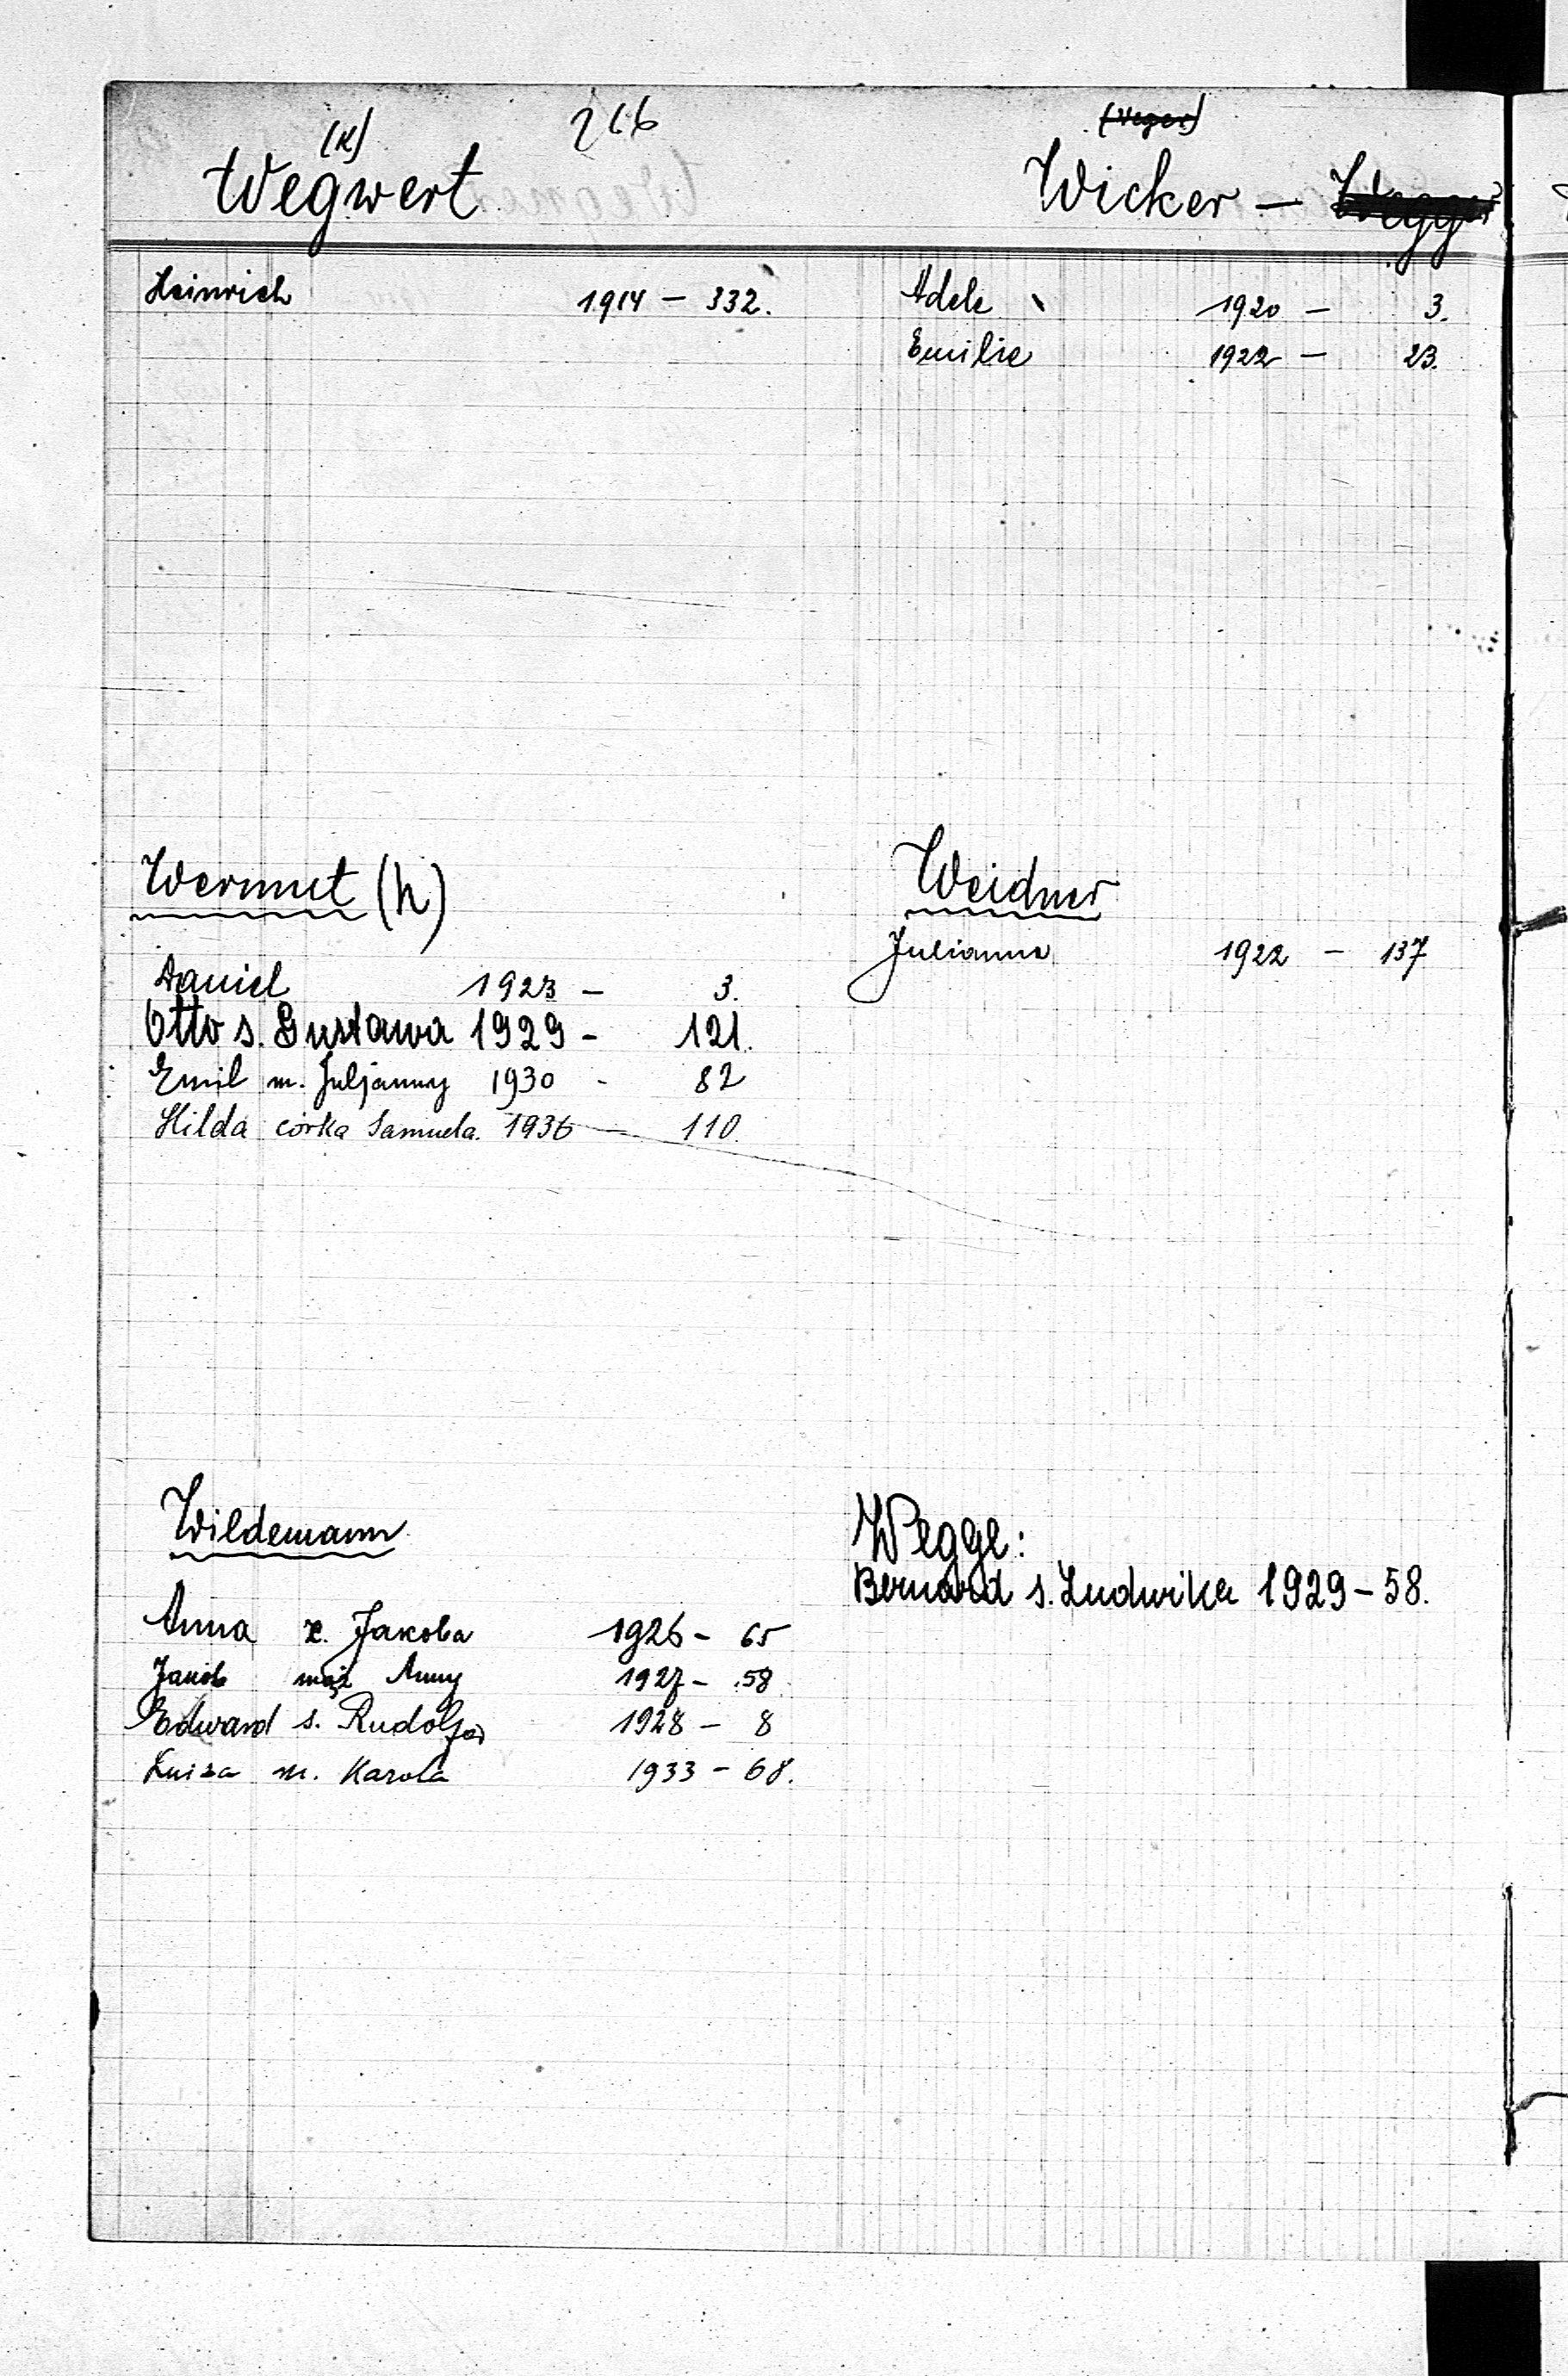 266
(K)
Wegwert
Heinrich 1914 - 332.
Wermut (h)
Daniel 1923 - 3.
Otto s. Gustawa 1929 - 121.
Emil m. Juljanny 1930 - 82
Hilda córka Samuela. 1936 - 110.
Wildemann
Anna ż. Jakoba 1926 - 65
Jakob mąż Anny 1927 - 58.
Edward s. Rudolfa 1928 - 8
Luiza m. Karola 1933 - 68.
(Veger)
Wicker -
Adele 1920 - 3.
Emilie 1922 - 23.
Weidner
Julianna 1922 - 137
Wegge:
Bernard s. Ludwika 1929 - 58.